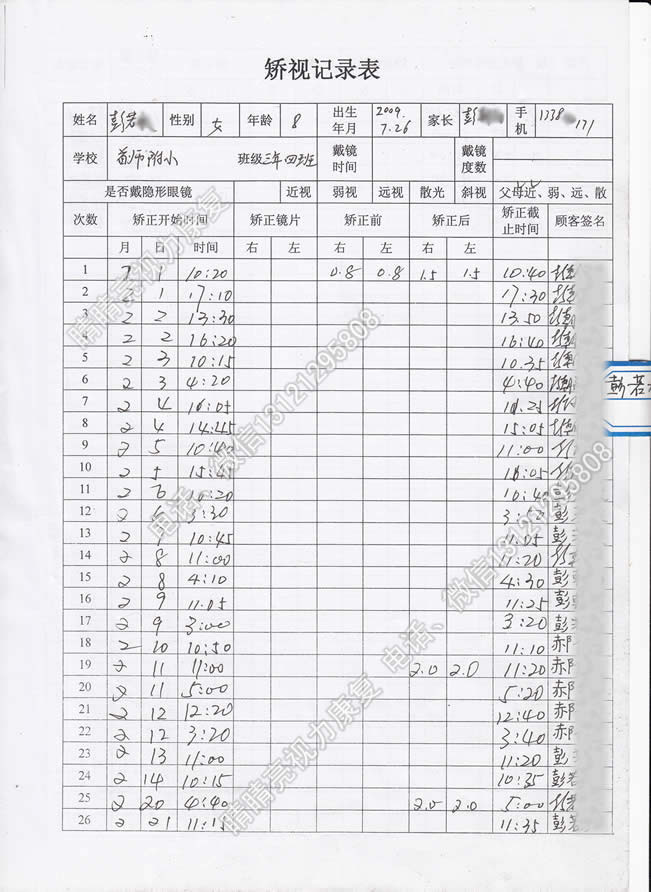 矫视记录表
姓名 彭若 性别 女 年龄 8 出生年月 2009.7.26 家长 彭 手机 1338 171
学校 首师附小 班级三年四班 戴镜时间 戴镜度数
是否戴隐形眼镜 近视 弱视 远视 散光 斜视 父母近、弱、远、散
次数 矫正开始时间 矫正镜片 矫正前 矫正后 矫正截止时间 顾客签名
月 日 时间 右 左 右 左 右 左
1 1 10:20 0.8 0.8 1.5 1.5 10:40
2 2 1 17:10 17:30
3 2 2 13:30 13.50
4 2 2 16:20 16:40
5 2 3 10:15 10.35
6 2 3 4:20 4:40
7 2 4 :05 .25
8 2 4 14:45 15:05
9 2 5 10:40 11:00
10 2 5 15:4 :05
11 2 6 10:20 10:40
12 2 6 3:30 3:50 彭
13 2 10:45 11.05 彭
14 2 8 11:00 11:20
15 2 8 4:10 4:30 彭
16 2 9 11:05 11:25 彭
17 2 9 3:00 3:20 彭
18 2 10 10:50 11:10 郝
19 2 11 11:00 2.0 2.0 11:20 郝
20 2 11 5:00 5:20 郝
21 2 12 12:20 12:40 郝
22 2 12 3:20 3:40 郝
23 2 13 11:00 11:20 彭
24 2 14 10:15 10:35 彭若
25 2 20 4:40 2.0 2.0 5:00
26 2 21 11:15 11:35 彭若
彭若
睛睛亮视力康复 电话、微信13121295808
睛睛亮视力康复 电话、微信13121295808